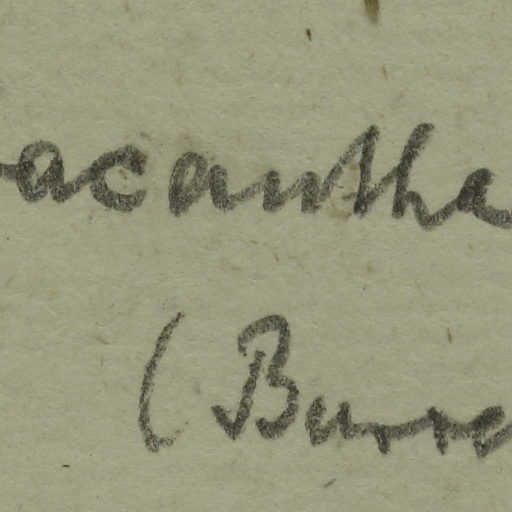 acantha
(Burre